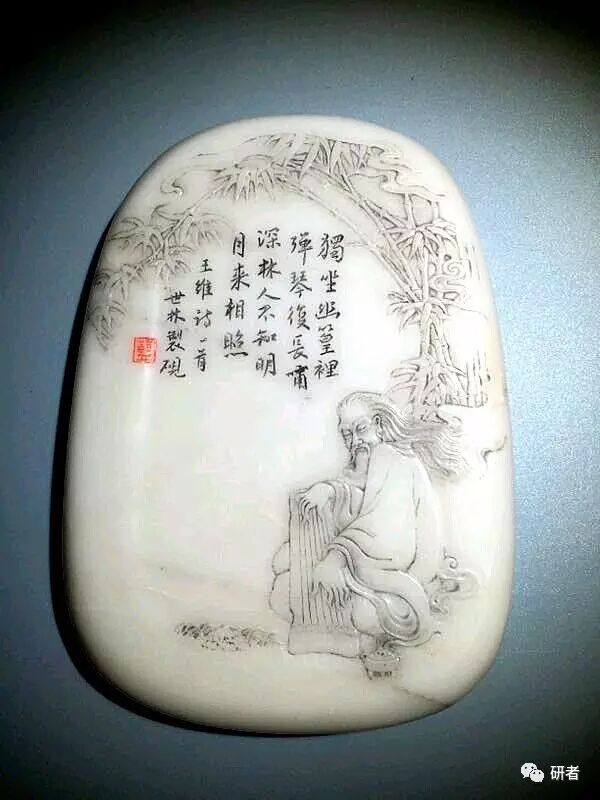 獨坐幽篁裡
弹琴復長嘯
深林人不知明
月来相照
王維詩一首
世林製硯
研者